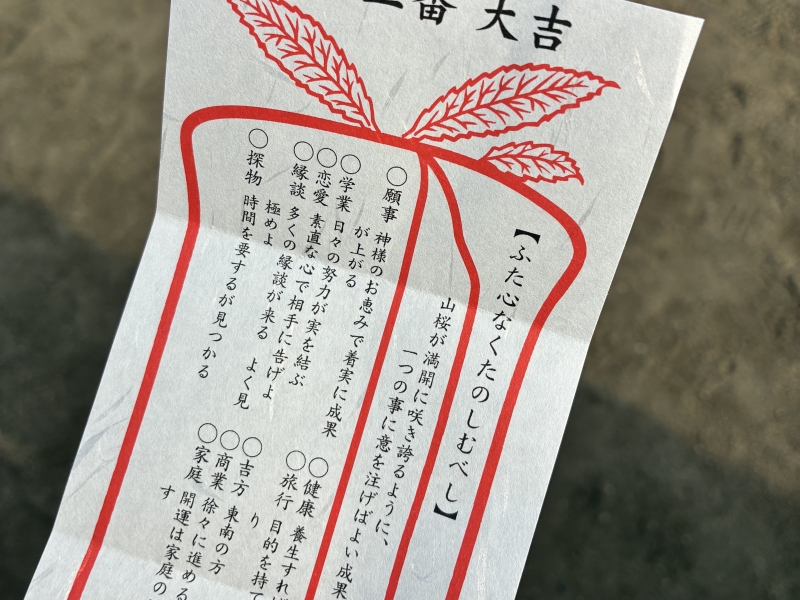 番 大吉
【ふた心なくたのしむべし】
山桜が満開に咲き誇るように、
一つの事に意を注げばよい成果
○願事 神様のお恵みで着実に成果
が上がる
○学業 日々の努力が実を結ぶ
○恋愛 素直な心で相手に告げよ
○縁談 多くの縁談が来る よく見
極めよ
○探物 時間を要するが見つかる
○健康 養生すれ
○旅行 目的を持て
り
○吉方 東南の方
○商業 徐々に進める
○家庭 開運は家庭の
す